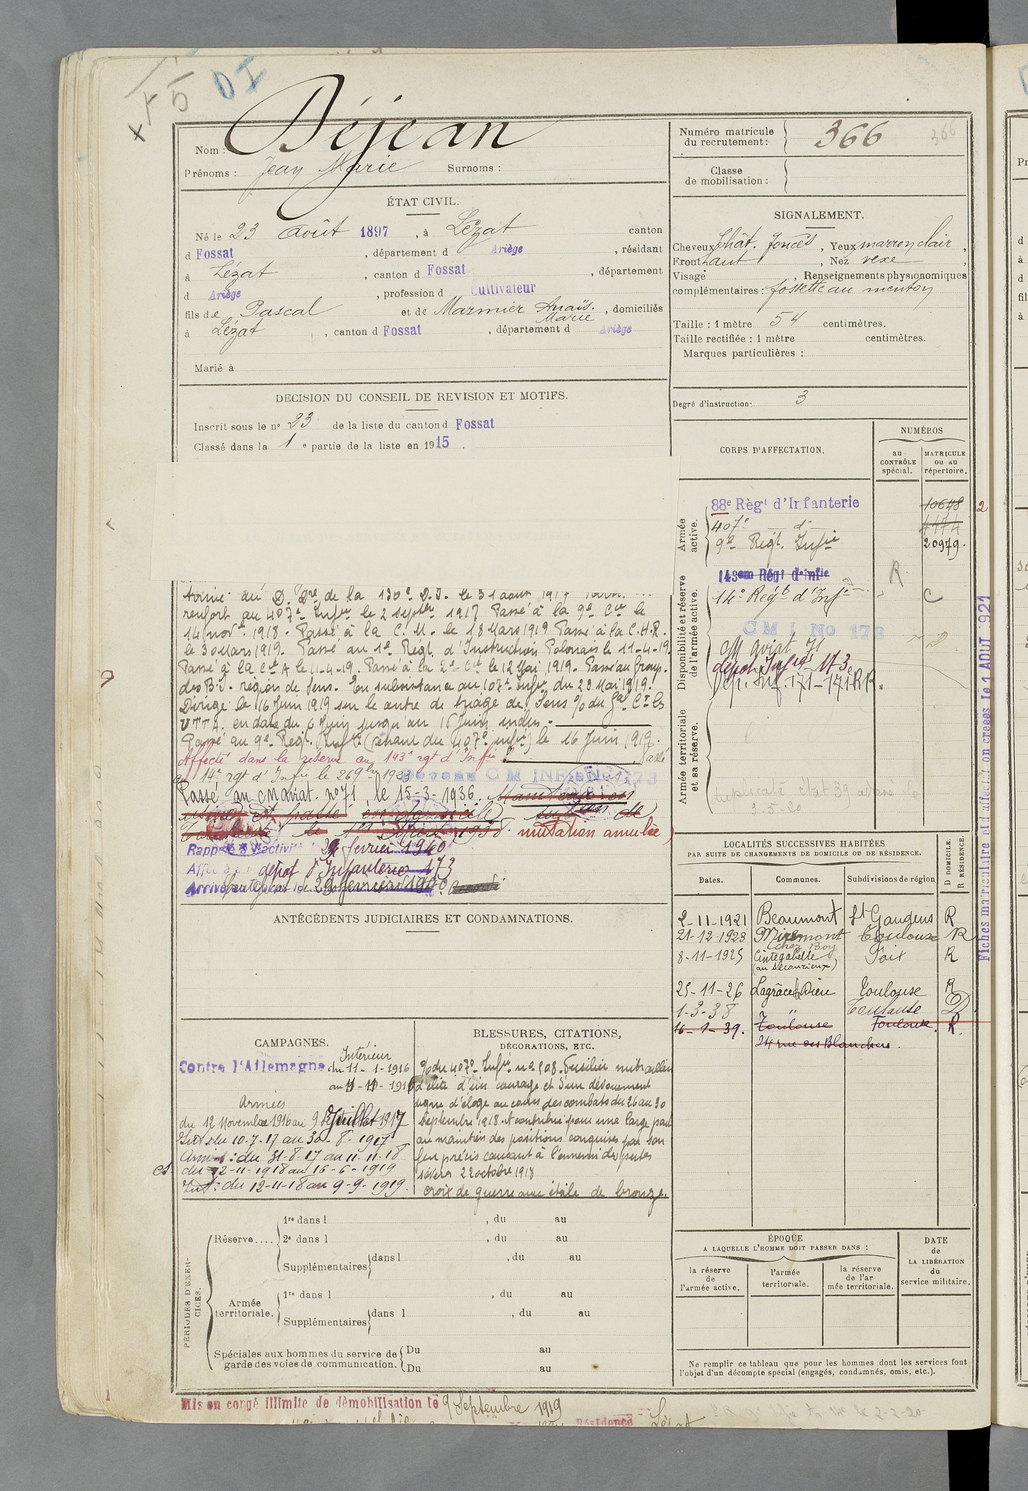 + 5 DI
Déjean
Nom :
Prénoms : Jean Marie Surnoms :
Numéro matricule
du recrutement : 366 366
Classe
de mobilisation :
ÉTAT CIVIL.
Né le 23 Août 1897, à Lézat canton
d Fossat, département d Ariège, résidant
à Lézat, canton d Fossat, département
d Ariège, profession d Cultivateur
fils de Pascal et de Marmier Anaïs Marie, domiciliés
à Lézat, canton d Fossat, département d Ariège
Marié à
SIGNALEMENT.
Cheveux chât. foncés, Yeux marron clair,
Front haut, Nez vexe,
Visage , Renseignements physionomiques
complémentaires : fossette au menton
Taille : 1 mètre 54 centimètres.
Taille rectifiée : 1 mètre centimètres.
Marques particulières :
DECISION DU CONSEIL DE REVISION ET MOTIFS.
Inscrit sous le no 23 de la liste du canton d Fossat
Classé dans la 1 e partie de la liste en 1915.
Degré d'instruction : 3
CORPS D'AFFECTATION.
NUMÉROS
au CONTRÔLE spécial.
MATRICULE OU AU répertoire.
Armée active.
88e Règt d'Infanterie
407e d°
9e Regt. Infie 20979.
Disponibilité et réserve de l'armée active.
143em Régt d'Infie
14e Regt d'Infie
R C
CMI No 173
CM ariat 71
dépot Infie 173
Armée territoriale et sa réserve.
3-5-20
D. de la 130e D.I. le 31 aout 1917
renfort au 407e Infie le 2 septbre 1917 Passé à la 9e Cie le
14 novbre 1918. Passé à la C. M. le 18 Mars 1919 Passé à la C.H.R.
le 30 mars 1919. Passé au 1er Regt. d'Instruction Polonais le 11-4-19.
Passé à la Cie A le 11-4-19. Passé à la 2e Cie le 12 Mai 1919. Passé au Group.
des B.I. région de Sens. En subsistance au 107e Infie du 29 Mai 1919.
Dirigé le 16 Juin 1919 sur le centre de triage de Sens
en date du 6 Juin jusqu'au 16 Juin inclus.
Passé au 9e Regt. Infie (venant du 407e Infie) le 16 Juin 1919.
Affecté dans la réserve au 143e rgt d'Infie Passé
au 14e rgt d'Infie le
Passé au CM Ariat. no 71, le 15-3-1936.
mutation annulée
Rappelé à l'activité février 1940
Affecté dépot d'Infanterie 173
Arrivé au Corps le 29 février 1940
ANTÉCÉDENTS JUDICIAIRES ET CONDAMNATIONS.
LOCALITÉS SUCCESSIVES HABITÉES
PAR SUITE DE CHANGEMENTS DE DOMICILE OU DE RÉSIDENCE.
Dates. Communes. Subdivisions de région D DOMICILE. R RÉSIDENCE.
2-11-1921 Beaumont St Gaudens R
21-12-1923 Miremont Toulouse R
chez Boy
8-11-1925 Cintegabelle Foix R
25-11-26 Lagrâce Dieu Toulouse R
1-3-38 " Toulouse D
16-1-39. Toulouse Toulouse. R.
24 rue des Blanchers.
Fiches matriculaire et d'affectation créées le 1 AOUT 1921
CAMPAGNES.
Contre l'Allemagne Intérieur
du 11-1-1916
au 11-11-1916
Armées
du 12 Novembre 1916 au 9 Juillet 1917
Int. du 10-7-17 au 30-8-1917
Armées : du 31-8-17 au 11-11-18
du 12-11-1918 au 16-6-1919
Int : du 12-11-18 au 9-9-1919.
BLESSURES, CITATIONS,
DÉCORATIONS, ETC.
O/ du 407e Infie no 208. Fusilier mitrailleur
d'élite d'un courage et d'un dévouement
digne d'éloge au cours des combats du 26 au 30
Septembre 1918. A contribué pour une large part
au maintien des positions conquises par son
feu précis causant à l'ennemi des pertes
sévères 22 octobre 1918
Croix de guerre avec étoile de bronze.
PÉRIODES D'EXERCICES.
Réserve....
1re dans l , du au
2e dans l , du au
Supplémentaires dans l , du au
Armée territoriale.
1re dans l , du au
Supplémentaires dans l , du au
Spéciales aux hommes du service de
garde des voies de communication.
Du au
Du au
ÉPOQUE
A LAQUELLE L'HOMME DOIT PASSER DANS :
la réserve de l'armée active.
l'armée territoriale.
la réserve de l'armée territoriale.
DATE de LA LIBÉRATION du service militaire.
Ne remplir ce tableau que pour les hommes dont les services font
l'objet d'un décompte spécial (engagés, condamnés, omis, etc.).
Mis en congé illimité de démobilisation le 9 Septembre 1919
Résidence Lézat